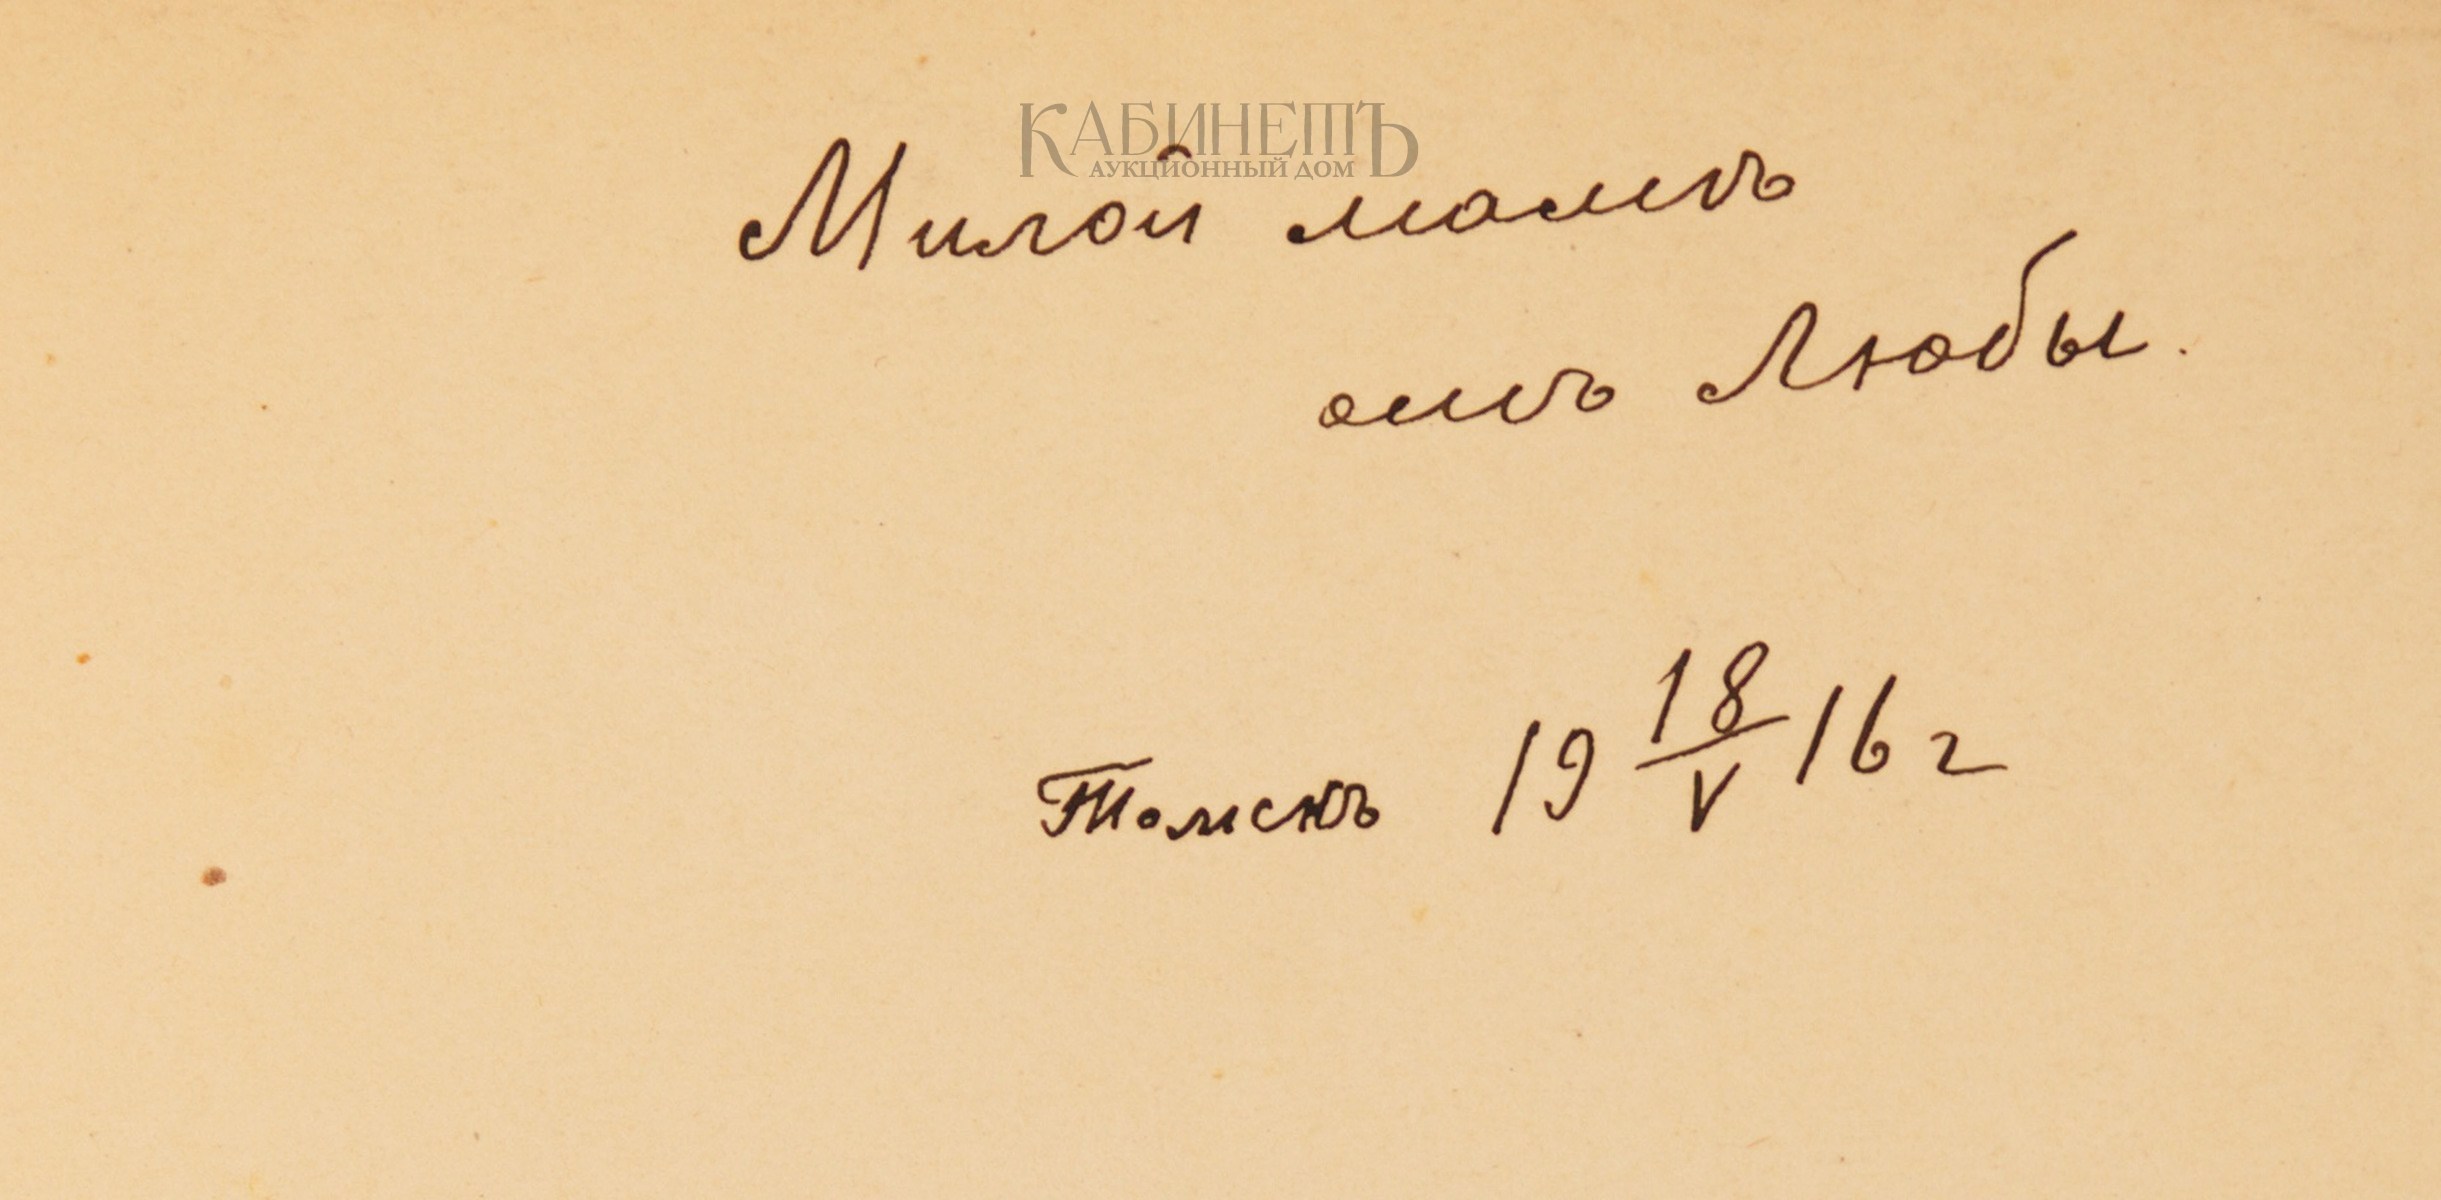 КАБИНЕТЪ
АУКЦИОННЫЙ ДОМ
Милой мамѣ
отъ Любы.
Томскъ 19 18/V 16 г